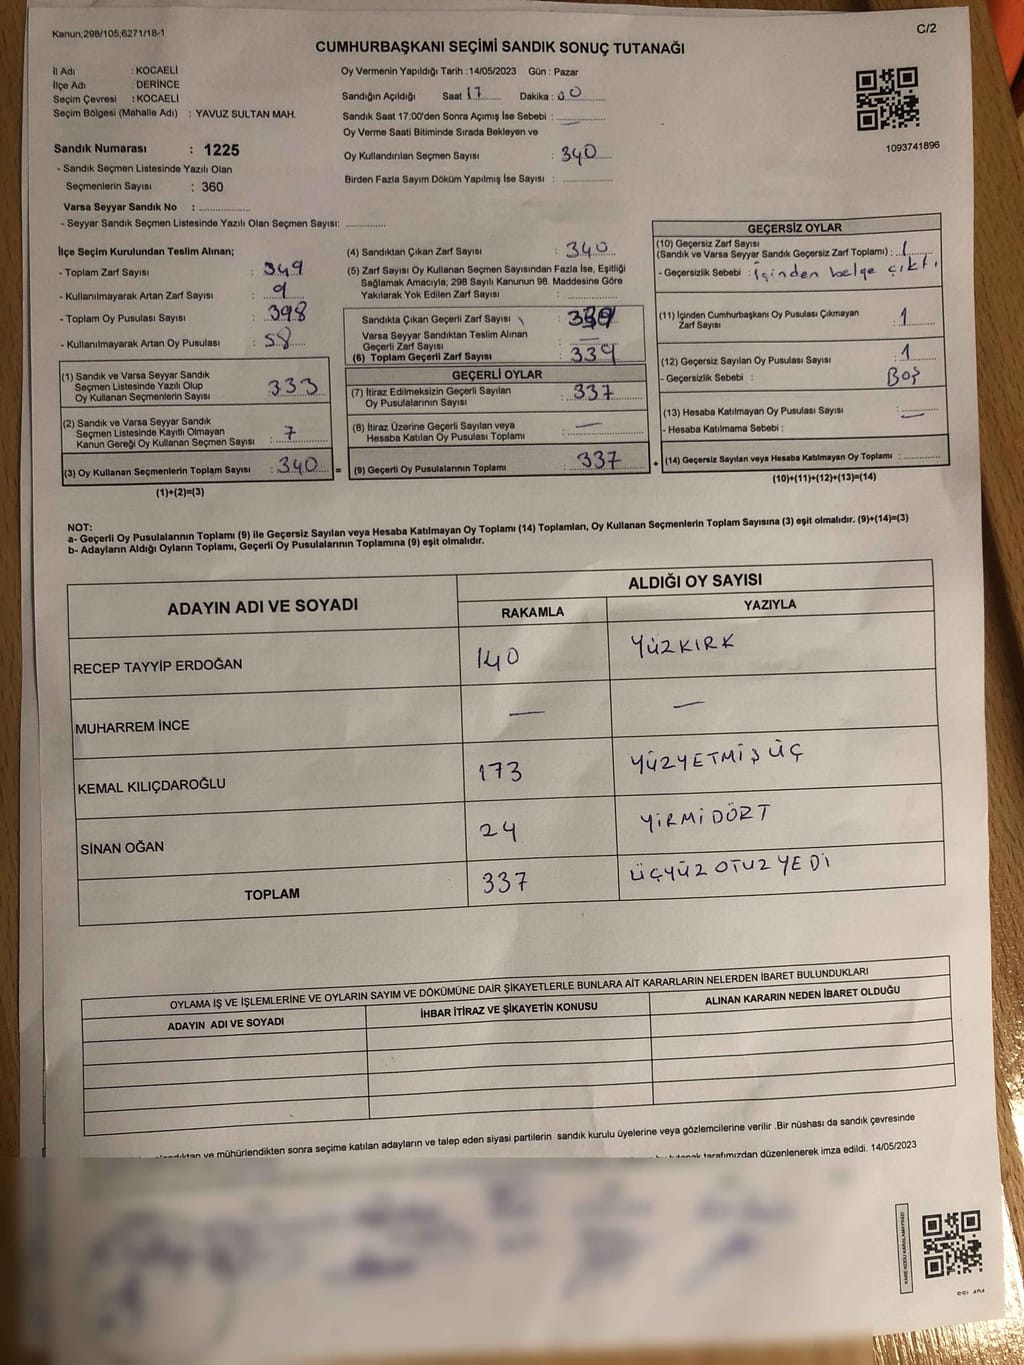 Kanun;298/105;6271/18-1
C/2
CUMHURBAŞKANI SEÇİMİ SANDIK SONUÇ TUTANAĞI
İl Adı : KOCAELİ
İlçe Adı : DERİNCE
Seçim Çevresi : KOCAELİ
Seçim Bölgesi (Mahalle Adı) : YAVUZ SULTAN MAH.
Oy Vermenin Yapıldığı Tarih :14/05/2023 Gün : Pazar
Sandığın Açıldığı Saat 17 Dakika : 00
Sandık Saat 17:00'den Sonra Açımış İse Sebebi : —
Oy Verme Saati Bitiminde Sırada Bekleyen ve
Oy Kullandırılan Seçmen Sayısı : 340
Birden Fazla Sayım Döküm Yapılmış İse Sayısı :
1093741896
Sandık Numarası : 1225
- Sandık Seçmen Listesinde Yazılı Olan
Seçmenlerin Sayısı : 360
Varsa Seyyar Sandık No :
- Seyyar Sandık Seçmen Listesinde Yazılı Olan Seçmen Sayısı:
İlçe Seçim Kurulundan Teslim Alınan;
- Toplam Zarf Sayısı : 349
- Kullanılmayarak Artan Zarf Sayısı : 9
- Toplam Oy Pusulası Sayısı : 398
- Kullanılmayarak Artan Oy Pusulası : 58
(1) Sandık ve Varsa Seyyar Sandık
Seçmen Listesinde Yazılı Olup
Oy Kullanan Seçmenlerin Sayısı : 333
(2) Sandık ve Varsa Seyyar Sandık
Seçmen Listesinde Kayıtlı Olmayan
Kanun Gereği Oy Kullanan Seçmen Sayısı : 7
(3) Oy Kullanan Seçmenlerin Toplam Sayısı : 340 =
(1)+(2)=(3)
(4) Sandıktan Çıkan Zarf Sayısı : 340
(5) Zarf Sayısı Oy Kullanan Seçmen Sayısından Fazla İse, Eşitliği
Sağlamak Amacıyla; 298 Sayılı Kanunun 98. Maddesine Göre
Yakılarak Yok Edilen Zarf Sayısı :
Sandıkta Çıkan Geçerli Zarf Sayısı : 339
Varsa Seyyar Sandıktan Teslim Alınan
Geçerli Zarf Sayısı : —
(6) Toplam Geçerli Zarf Sayısı : 339
GEÇERLİ OYLAR
(7) İtiraz Edilmeksizin Geçerli Sayılan
Oy Pusulalarının Sayısı : 337
(8) İtiraz Üzerine Geçerli Sayılan veya
Hesaba Katılan Oy Pusulası Toplamı : —
(9) Geçerli Oy Pusulalarının Toplamı : 337 +
GEÇERSİZ OYLAR
(10) Geçersiz Zarf Sayısı
(Sandık ve Varsa Seyyar Sandık Geçersiz Zarf Toplamı) : 1
- Geçersizlik Sebebi : İçinden belge çıktı.
(11) İçinden Cumhurbaşkanı Oy Pusulası Çıkmayan
Zarf Sayısı : 1
(12) Geçersiz Sayılan Oy Pusulası Sayısı : 1
- Geçersizlik Sebebi : BOŞ
(13) Hesaba Katılmayan Oy Pusulası Sayısı : —
- Hesaba Katılmama Sebebi :
(14) Geçersiz Sayılan veya Hesaba Katılmayan Oy Toplamı :
(10)+(11)+(12)+(13)=(14)
NOT:
a- Geçerli Oy Pusulalarının Toplamı (9) ile Geçersiz Sayılan veya Hesaba Katılmayan Oy Toplamı (14) Toplamları, Oy Kullanan Seçmenlerin Toplam Sayısına (3) eşit olmalıdır. (9)+(14)=(3)
b- Adayların Aldığı Oyların Toplamı, Geçerli Oy Pusulalarının Toplamına (9) eşit olmalıdır.
ADAYIN ADI VE SOYADI
ALDIĞI OY SAYISI
RAKAMLA YAZIYLA
RECEP TAYYİP ERDOĞAN 140 YÜZKIRK
MUHARREM İNCE — —
KEMAL KILIÇDAROĞLU 173 YÜZYETMİŞÜÇ
SİNAN OĞAN 24 YİRMİDÖRT
TOPLAM 337 ÜÇYÜZOTUZYEDİ
OYLAMA İŞ VE İŞLEMLERİNE VE OYLARIN SAYIM VE DÖKÜMÜNE DAİR ŞİKAYETLERLE BUNLARA AİT KARARLARIN NELERDEN İBARET BULUNDUKLARI
ADAYIN ADI VE SOYADI İHBAR İTİRAZ VE ŞİKAYETİN KONUSU ALINAN KARARIN NEDEN İBARET OLDUĞU
ve mühürlendikten sonra seçime katılan adayların ve talep eden siyasi partilerin sandık kurulu üyelerine veya gözlemcilerine verilir .Bir nüshası da sandık çevresinde
tutanak tarafımızdan düzenlenerek imza edildi. 14/05/2023